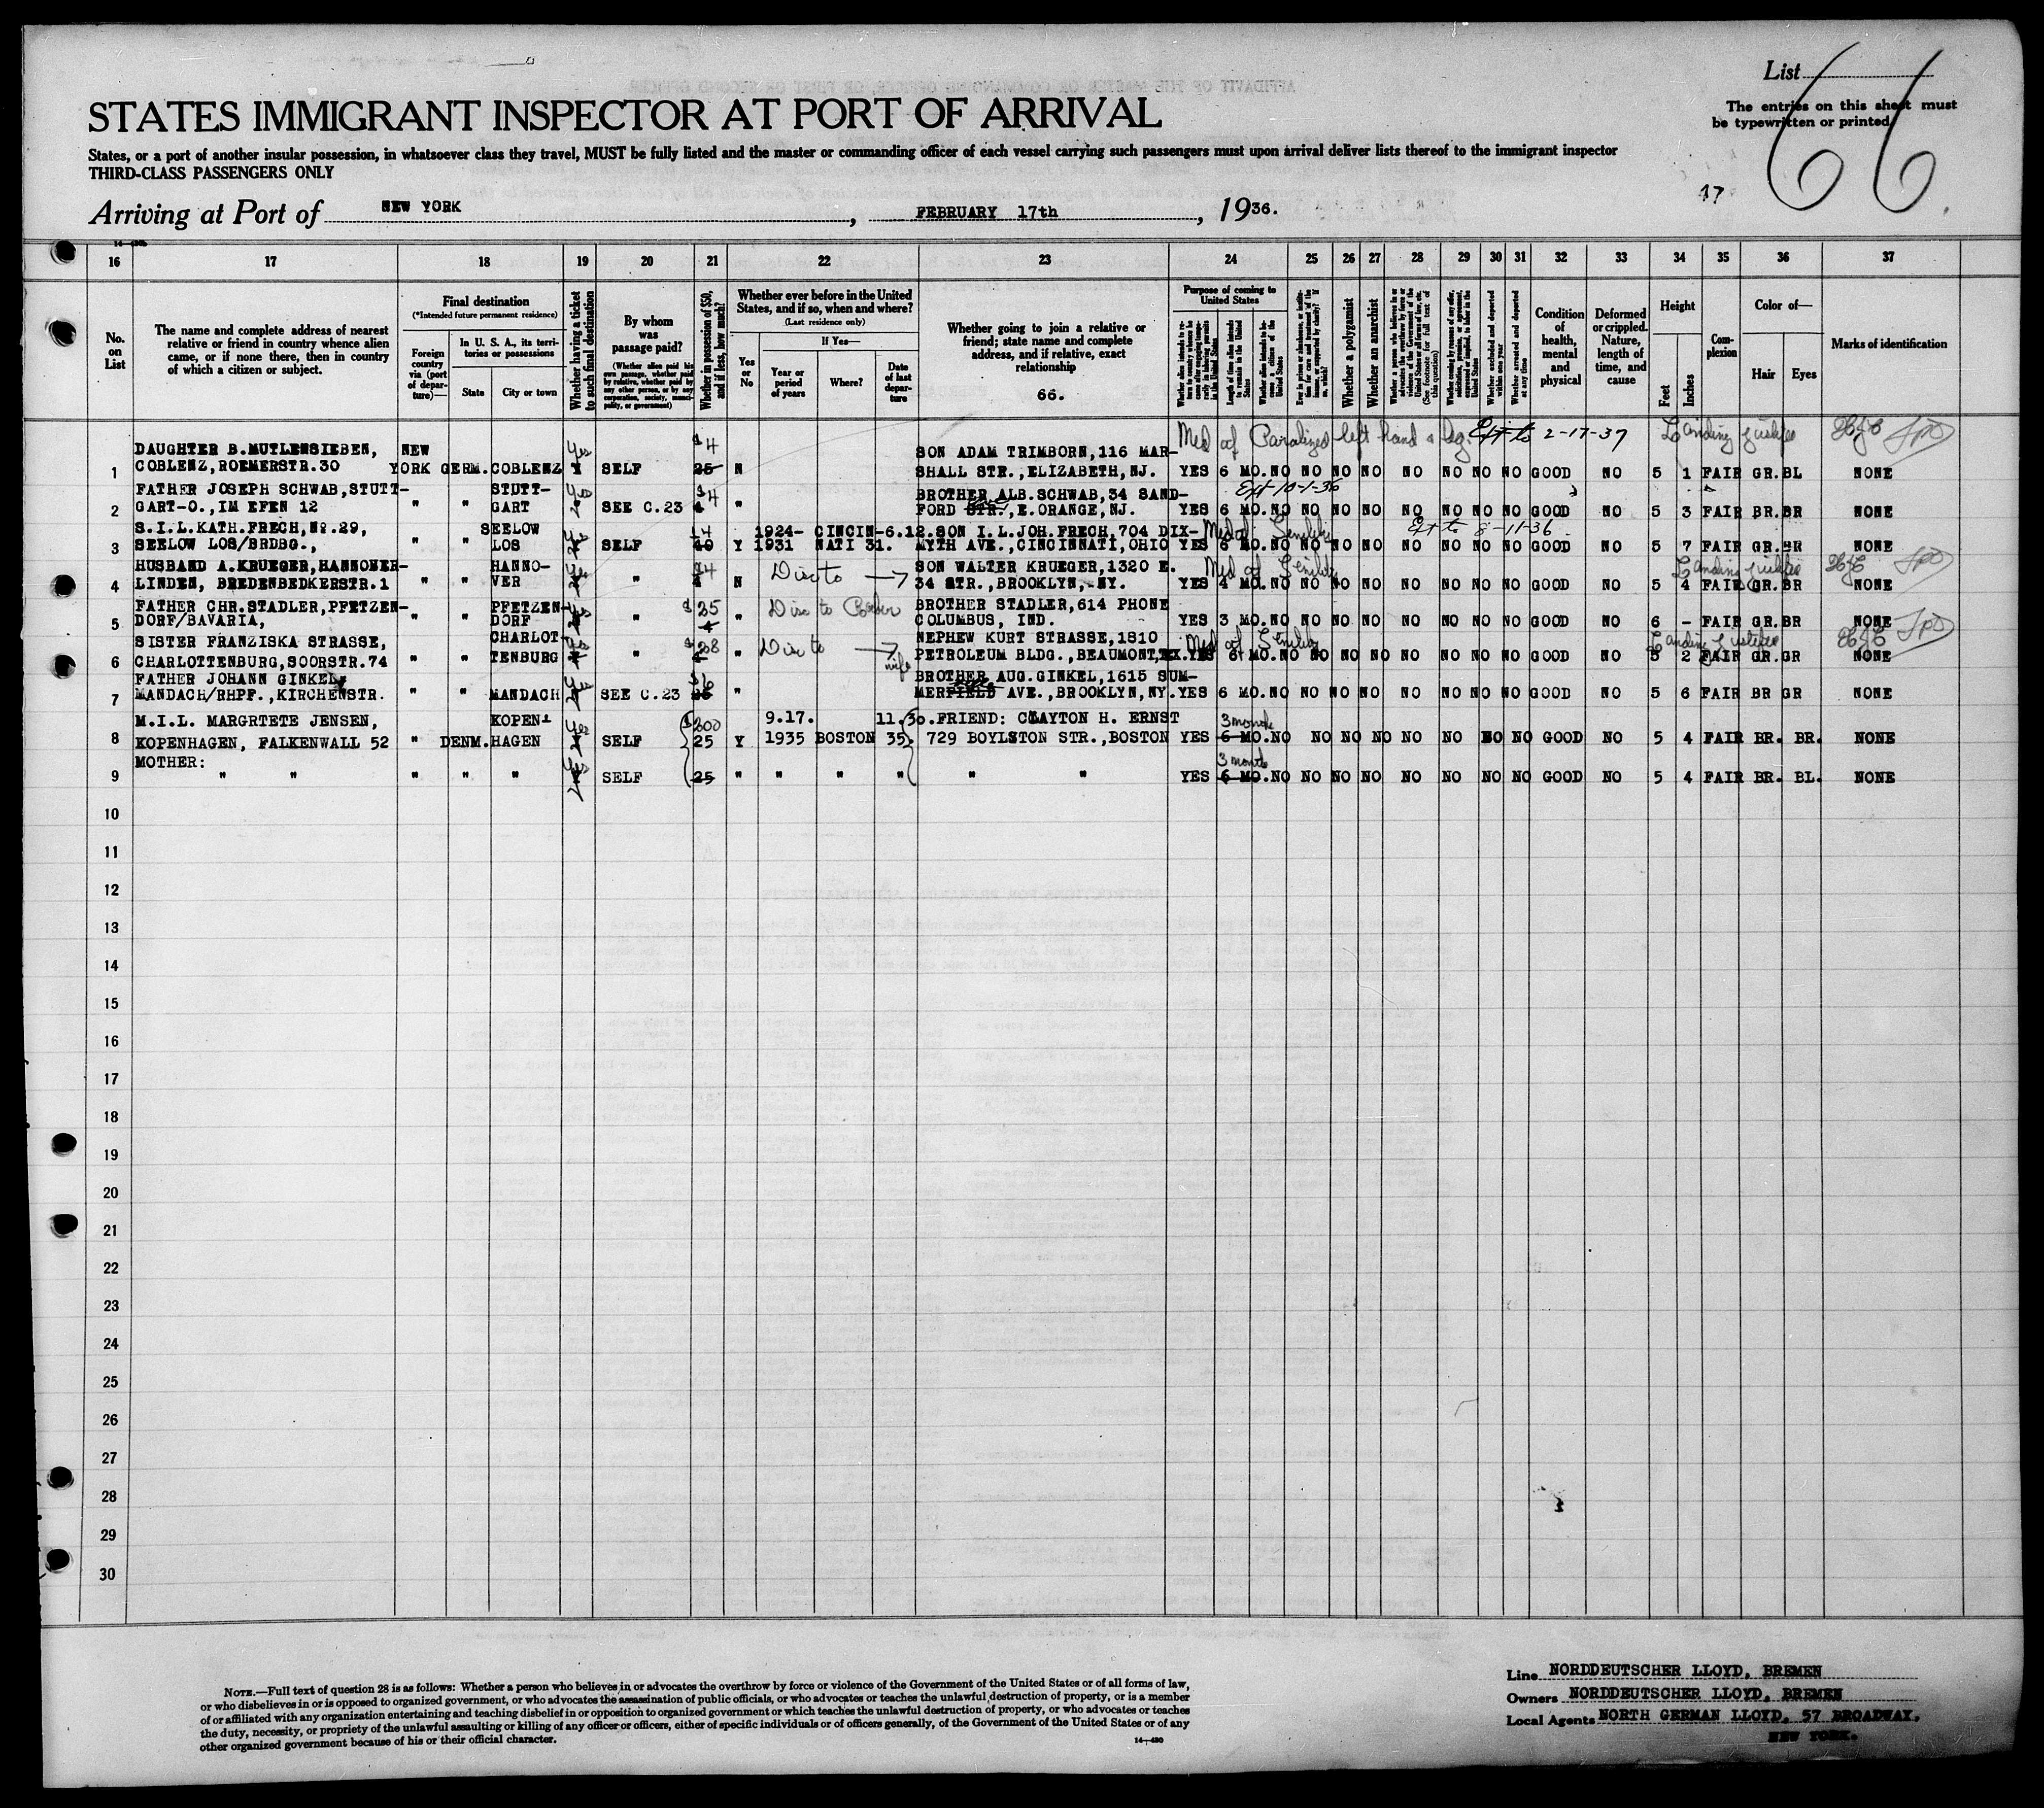 List
66
The entries on this sheet must
be typewritten or printed
STATES IMMIGRANT INSPECTOR AT PORT OF ARRIVAL
States, or a port of another insular possession, in whatsoever class they travel, MUST be fully listed and the master or commanding officer of each vessel carrying such passengers must upon arrival deliver lists thereof to the immigrant inspector
THIRD-CLASS PASSENGERS ONLY
17
Arriving at Port of NEW YORK, FEBRUARY 17th, 1936.
16 17 18 19 20 21 22 23 24 25 26 27 28 29 30 31 32 33 34 35 36 37
No. on List
The name and complete address of nearest relative or friend in country whence alien came, or if none there, then in country of which a citizen or subject.
Final destination
(*Intended future permanent residence)
Foreign country via (port of departure)—
In U. S. A., its territories or possessions
State
City or town
Whether having a ticket to such final destination
By whom was passage paid?
(Whether alien paid his own passage, whether paid by relative, whether paid by any other person, or by any corporation, society, municipality, or government)
Whether in possession of $50, and if less, how much?
Whether ever before in the United States, and if so, when and where?
(Last residence only)
Yes or No
If Yes—
Year or period of years
Where?
Date of last departure
Whether going to join a relative or friend; state name and complete address, and if relative, exact relationship
66.
Purpose of coming to United States
Length of time alien intends to remain in the United States
Whether a polygamist
Whether an anarchist
Whether excluded and deported within one year
Whether arrested and deported at any time
Condition of health, mental and physical
Deformed or crippled. Nature, length of time, and cause
Height
Feet
Inches
Complexion
Color of—
Hair
Eyes
Marks of identification
Med of Paralized left hand & leg. Ext to 2-17-37
DAUGHTER B.MUTLENSIEBEN, NEW yes $4 SON ADAM TRIMBORN,116 MAR-
1 COBLENZ,ROEMERSTR.30 YORK GERM. COBLENZ Y SELF 25 N SHALL STR.,ELIZABETH,NJ. YES 6 MO. NO NO NO NO NO NO NO NO GOOD NO 5 1 FAIR GR. BL NONE
FATHER JOSEPH SCHWAB,STUTT- STUTT- yes $4 BROTHER ALB.SCHWAB,34 SAND- Ext-10-1-36
2 GART-O.,IM EFEN 12 " " GART SEE C.23 4 " FORD STR.,E.ORANGE,NJ. YES 6 MO. NO NO NO NO NO NO NO NO GOOD NO 5 3 FAIR BR. BR NONE
S.I.L.KATH.FRECH,No.29, SEELOW 1924- CINCIN- 6.12. SON I.L.JOH.FRECH,704 DIX- Ext to 8-11-36
3 SEELOW LOS/BRDBG., " " LOS SELF 40 Y 1931 NATI 31. MYTH AVE.,CINCINNATI,OHIO YES 6 MO. NO NO NO NO NO NO NO NO GOOD NO 5 7 FAIR GR. NONE
HUSBAND A.KRUEGER,HANNOVER- HANNO- yes $4 SON WALTER KRUEGER,1320 E. Med of Senility
4 LINDEN, BREDENBEDKERSTR.1 " " VER " 4 N Disc to → 34 STR.,BROOKLYN,-NY. YES 4 MO. NO NO NO NO NO NO NO NO GOOD NO 5 4 FAIR GR. BR NONE
FATHER CHR.STADLER,PFETZEN- PFETZEN- $25 BROTHER STADLER,614 PHONE
5 DORF/BAVARIA, " " DORF " 4 " Disc to COLUMBUS, IND. YES 3 MO. NO NO NO NO NO NO NO NO GOOD NO 6 - FAIR GR. BR NONE
SISTER FRANZISKA STRASSE, CHARLOT- NEPHEW KURT STRASSE,1810 Med of Senility
6 CHARLOTTENBURG,SOORSTR.74 " " TENBURG " " Disc to → PETROLEUM BLDG.,BEAUMONT, YES 6 MO. NO NO NO NO NO NO NO NO GOOD NO 5 2 FAIR GR. GR NONE
FATHER JOHANN GINKEL, wife BROTHER AUG.GINKEL,1615 SUM-
7 MANDACH/RHPF.,KIRCHENSTR. " " MANDACH SEE C.23 " MERFIELD AVE.,BROOKLYN,NY. YES 6 MO. NO NO NO NO NO NO NO NO GOOD NO 5 6 FAIR BR GR NONE
M.I.L. MARGRTETE JENSEN, KOPEN- yes $200 9.17. 11.30. FRIEND: CLAYTON H. ERNST 3 months
8 KOPENHAGEN, FALKENWALL 52 " DENM. HAGEN SELF 25 Y 1935 BOSTON 35. 729 BOYLSTON STR.,BOSTON YES 6 MO. NO NO NO NO NO NO NO NO GOOD NO 5 4 FAIR BR. BR. NONE
MOTHER: yes 3 months
9 " " " " " SELF 25 " " " " " " YES 6 MO. NO NO NO NO NO NO NO NO GOOD NO 5 4 FAIR BR. BL. NONE
10
11
12
13
14
15
16
17
18
19
20
21
22
23
24
25
26
27
28
29
30
NOTE.—Full text of question 28 is as follows: Whether a person who believes in or advocates the overthrow by force or violence of the Government of the United States or of all forms of law,
or who disbelieves in or is opposed to organized government, or who advocates the assassination of public officials, or who advocates or teaches the unlawful destruction of property, or is a member
of or affiliated with any organization entertaining and teaching disbelief in or opposition to organized government or which teaches the unlawful destruction of property, or who advocates or teaches
the duty, necessity, or propriety of the unlawful assaulting or killing of any officer or officers, either of specific individuals or of officers generally, of the Government of the United States or of any
other organized government because of his or their official character.
14—430
Line NORDDEUTSCHER LLOYD, BREMEN
Owners NORDDEUTSCHER LLOYD, BREMEN
Local Agents NORTH GERMAN LLOYD, 57 BROADWAY,
NEW YORK.